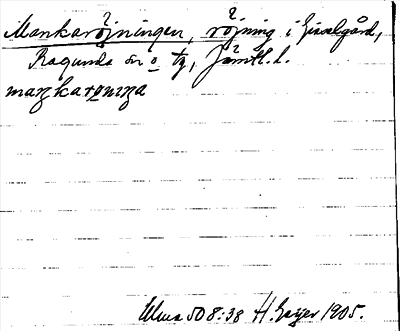 Mankaröjningen, röjning i Gisselgård,
Ragunda sn o tg, Jämtl. l.
maŋkarɵnıŋa
Ulma 508:38 H. Geijer 1905.